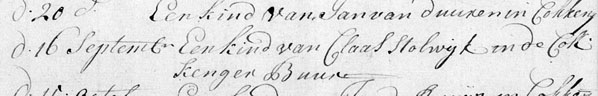 d: 20 d Een kind van Jan van Duuren in Cokkeng
d: 16 Septembr Een kind van Claas Stolwijk in de Cok
kenger Buurt